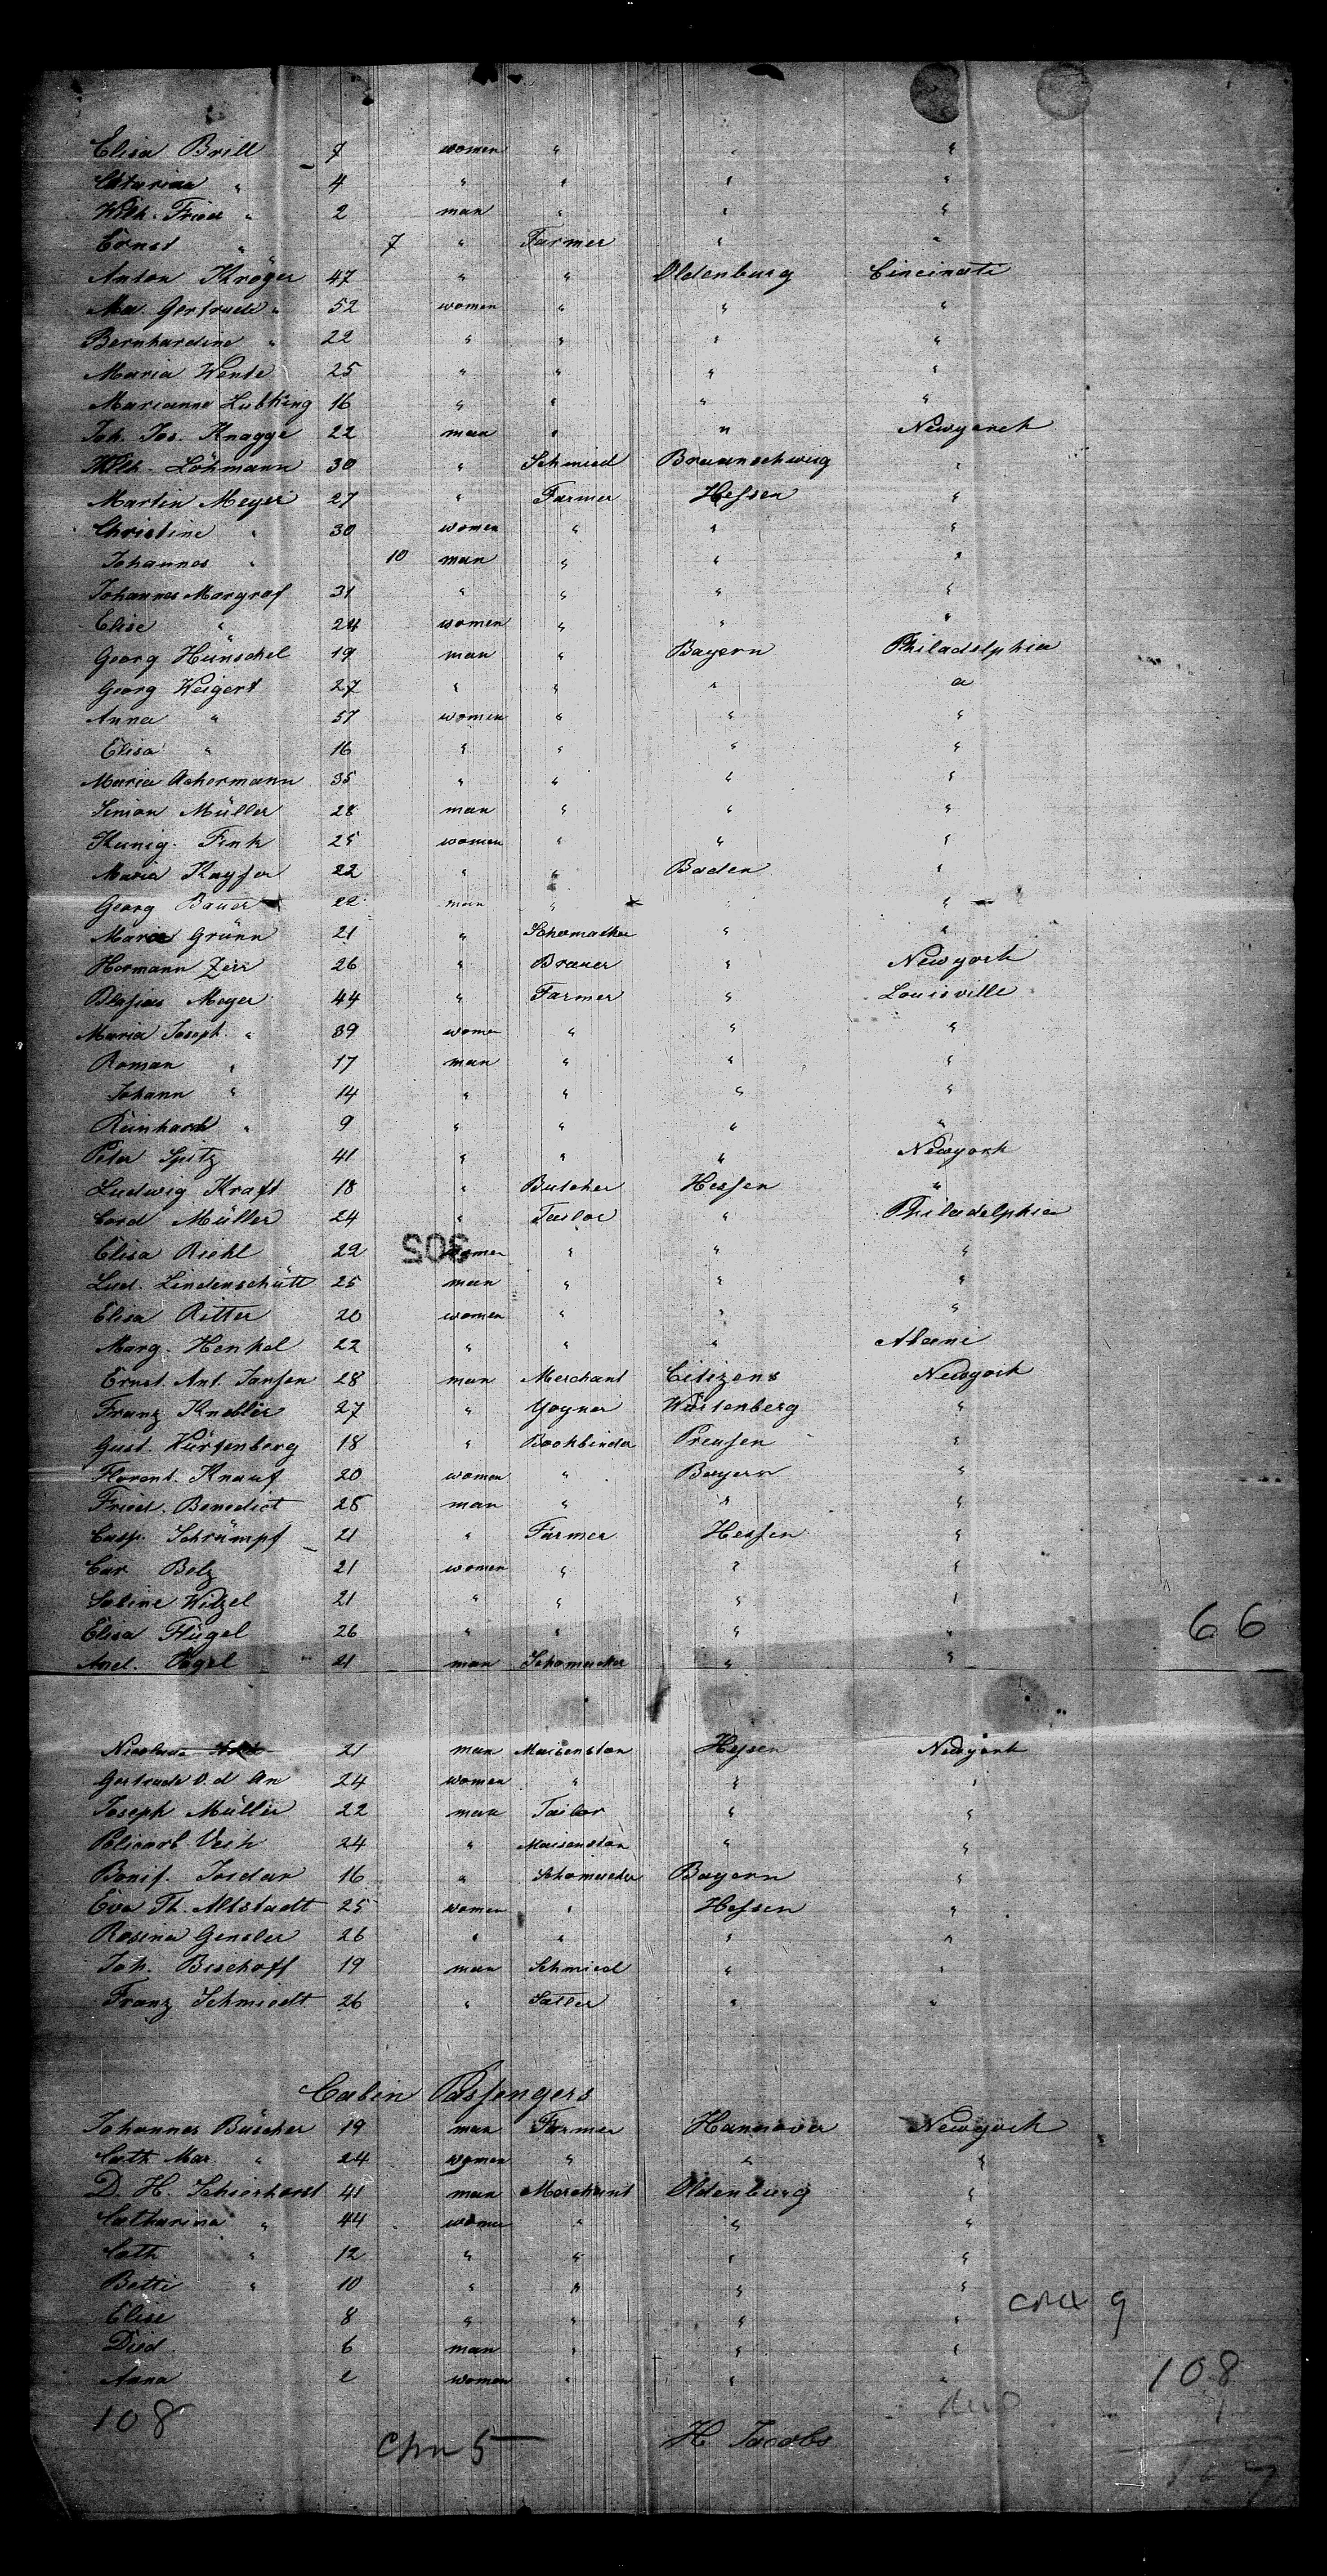 Elisa Brill 7 women " " "
Catarina " 4 " " " "
Wilh. Fried " 2 man " " "
Ernst " 7 " Farmer " "
Anton Kröger 47 " " Oldenburg Cincinati
Ma. Gertrude " 52 women " " "
Bernhardine " 22 " " " "
Maria Wente 25 " " " "
Marianne Lübking 16 " " " "
Joh. Jos. Knagge 22 man " " Newyorck
Wilh. Löhmann 30 " Schmied Braunschweig "
Martin Meyer 27 " Farmer Hessen "
Christine " 30 women " " "
Johannes " 10 man " " "
Johannes Margraf 31 " " " "
Elise " 24 women " " "
Georg Hünschel 19 man " Bayern Philadelphia
Georg Weigert 27 " " " a
Anna " 57 women " " "
Elisa " 16 " " " "
Maria Achermann 35 " " " "
Simon Müller 28 man " " "
Kunig. Fink 25 women " " "
Maria Kayser 22 " " Baden "
Georg Bauer 22 man " " "
Grünn 21 " Schomacher " "
Hermann Zeir 26 " Brauer " Newyork
Blasius Meyer 44 " Farmer " Louisville
Maria Joseph. " 39 women " " "
Roman " 17 man " " "
Johann " 14 " " " "
Reinhard " 9 " " " "
Peter Spitz 41 " " " Newyork
Ludwig Kraft 18 " Butcher Hessen "
Cord Müller 24 " Tailor " Philadelphia
Elisa Riehl 22 women " " "
305
Lud. Lindenschütt 25 man " " "
Elisa Ritter 20 women " " "
Marg. Henkel 22 " " "
Ernst. Ant. Jansen 28 man Merchant Citizens Newyork
Franz Knebler 27 " Würtenberg "
Gust. Würtenberg 18 " Bookbinder Preusen "
Florent. Knauf 20 women " Bayern "
Fried. Benedict 25 man " " "
Casp. Schrümpf 21 " Farmer Hessen "
Car Bolz 21 women " " "
Sabine Witzel 21 " " " "
Elisa Flügel 26 " " " "
66
And. Vogel 21 man Schomacker " "
Nicolaus 21 man Maisenston Hessen Newyork
Gertrude V. d An 24 women " " "
Joseph Müller 22 man Tailor " "
Policarb Veih 24 " Maisenston " "
Bonif. Jordan 16 " Schomacher Bayern "
Eva Th. Altstadt 25 women " Hessen "
Rosina Gensler 26 " " " "
Joh. Bischoff 19 man Schmied " "
Franz Schmiedt 26 " Satler " "
Cabin Passengers
Johannes Büscher 19 man Farmer Hannover Newyork
Cath Mar. " 24 women " " "
D. H. Schierhorst 41 man Merchant Oldenburg "
Catharina " 44 women " " "
Cath " 12 " " " "
Betti " 10 " " " "
Elise 8 " " " "
9
Died. 6 man " " "
Anna 2 women " " "
108
108
5
H. Jacobs